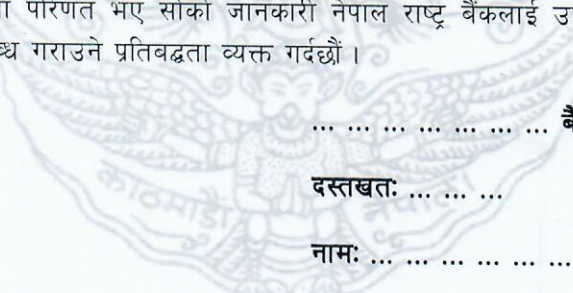 परिणत भए सोको जानकारी नेपाल राष्ट्र बैंकलाई
गराउने प्रतिबद्धता व्यक्त गर्दछौं ।
... ... ... ... ... ... ...
दस्तखतः ... ... ...
नामः ... ... ... ... ... ... ...
काठमाडौं नेपाल